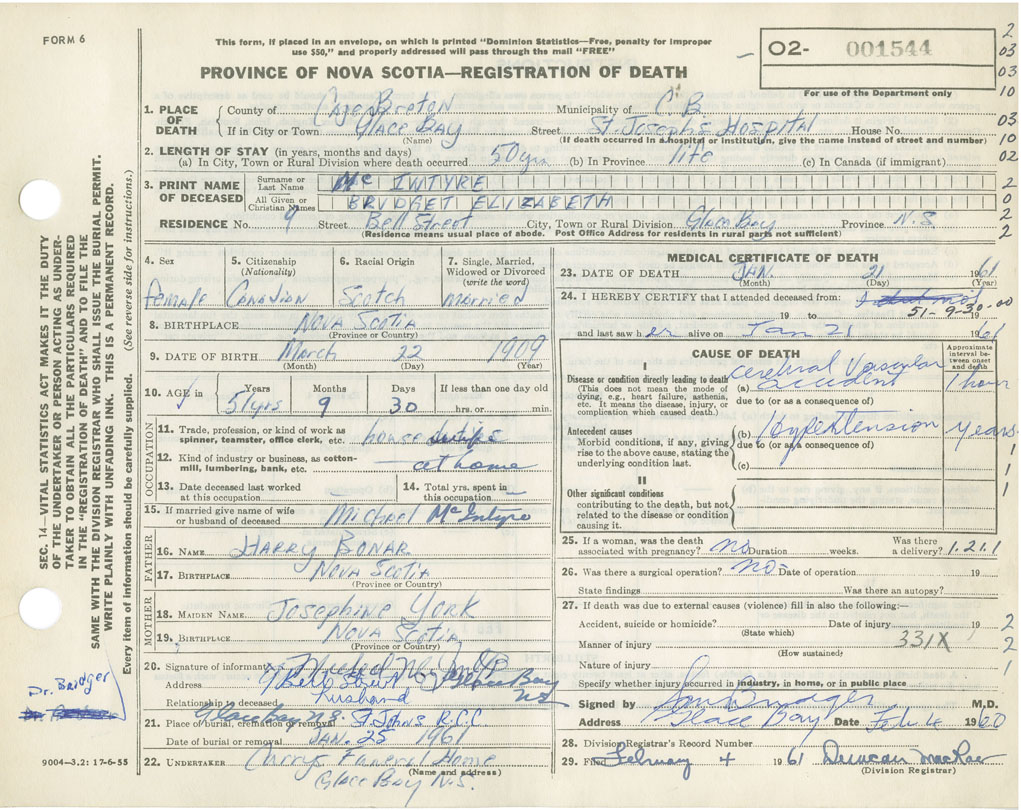 FORM 6
This form, if placed in an envelope, on which is printed "Dominion Statistics—Free, penalty for improper
use $50," and properly addressed will pass through the mail "FREE"
PROVINCE OF NOVA SCOTIA—REGISTRATION OF DEATH
O2- 001544
For use of the Department only
2
03
03
10
03
10
02
2
0
2
2
1. PLACE OF DEATH
County of Cape Breton Municipality of C.B.
If in City or Town Glace Bay Street St. Joseph's Hospital House No.
(Name) (If death occurred in a hospital or institution, give the name instead of street and number)
2. LENGTH OF STAY (in years, months and days)
(a) In City, Town or Rural Division where death occurred 50 yrs (b) In Province life (c) In Canada (if immigrant)
3. PRINT NAME OF DECEASED
Surname or Last Name Mc INTYRE
All Given or Christian Names BRIDGET ELIZABETH
RESIDENCE No. 9 Street Bell Street City, Town or Rural Division Glace Bay Province N.S.
(Residence means usual place of abode. Post Office Address for residents in rural parts not sufficient)
4. Sex female
5. Citizenship (Nationality) Canadian
6. Racial Origin Scotch
7. Single, Married, Widowed or Divorced (write the word) married
8. BIRTHPLACE Nova Scotia
(Province or Country)
9. DATE OF BIRTH March 22 1909
(Month) (Day) (Year)
10. AGE in Years Months Days If less than one day old
51 yrs 9 30 hrs. or min.
OCCUPATION
11. Trade, profession, or kind of work as spinner, teamster, office clerk, etc. house
12. Kind of industry or business, as cotton-mill, lumbering, bank, etc. at home
13. Date deceased last worked at this occupation
14. Total yrs. spent in this occupation
15. If married give name of wife or husband of deceased Michael McIntyre
FATHER
16. NAME Harry Bonar
17. BIRTHPLACE Nova Scotia
(Province or Country)
MOTHER
18. MAIDEN NAME Josephine York
19. BIRTHPLACE Nova Scotia
(Province or Country)
20. Signature of informant Michael McIntyre
Address 9 Bell Street Glace Bay N.S.
Relationship to deceased husband
21. Place of burial, cremation or removal Glace Bay N.S. St. John's R.C.C.
Date of burial or removal JAN. 25 1961
22. UNDERTAKER Currys Funeral Home
(Name and address)
Glace Bay N.S.
MEDICAL CERTIFICATE OF DEATH
23. DATE OF DEATH JAN. 21 1961
(Month) (Day) (Year)
24. I HEREBY CERTIFY that I attended deceased from:
51-9-30-00
19 to 19
and last saw her alive on Jan 21 1961
CAUSE OF DEATH
Approximate interval between onset and death
I
Disease or condition directly leading to death
(This does not mean the mode of dying, e.g., heart failure, asthenia, etc. It means the disease, injury, or complication which caused death.)
(a) Cerebral Vascular accident 1 hour
due to (or as a consequence of)
Antecedent causes
Morbid conditions, if any, giving rise to the above cause, stating the underlying condition last.
(b) Hypertension years
due to (or as a consequence of)
(c)
1
1
1
II
Other significant conditions
contributing to the death, but not related to the disease or condition causing it.
25. If a woman, was the death associated with pregnancy? no Duration weeks. Was there a delivery? 1.21.1
26. Was there a surgical operation? no Date of operation 19
State findings Was there an autopsy?
27. If death was due to external causes (violence) fill in also the following:—
Accident, suicide or homicide? Date of injury 19 2
(State which)
Manner of injury 331X 2
(How sustained)
Nature of injury 1
Specify whether injury occurred in industry, in home, or in public place
Signed by Bridger M.D.
Address Glace Bay Date Feb 4 1960
28. Division Registrar's Record Number
29. Filed February 4 1961 Duncan MacRae
(Division Registrar)
SEC. 14—VITAL STATISTICS ACT MAKES IT THE DUTY
OF THE UNDERTAKER OR PERSON ACTING AS UNDER-
TAKER TO OBTAIN ALL THE PARTICULARS REQUIRED
IN THE "REGISTRATION OF DEATH" AND TO FILE THE
SAME WITH THE DIVISION REGISTRAR WHO SHALL ISSUE THE BURIAL PERMIT.
WRITE PLAINLY WITH UNFADING INK. THIS IS A PERMANENT RECORD.
Every item of information should be carefully supplied. (See reverse side for instructions.)
Dr. Bridger
9004-3.2: 17-6-55